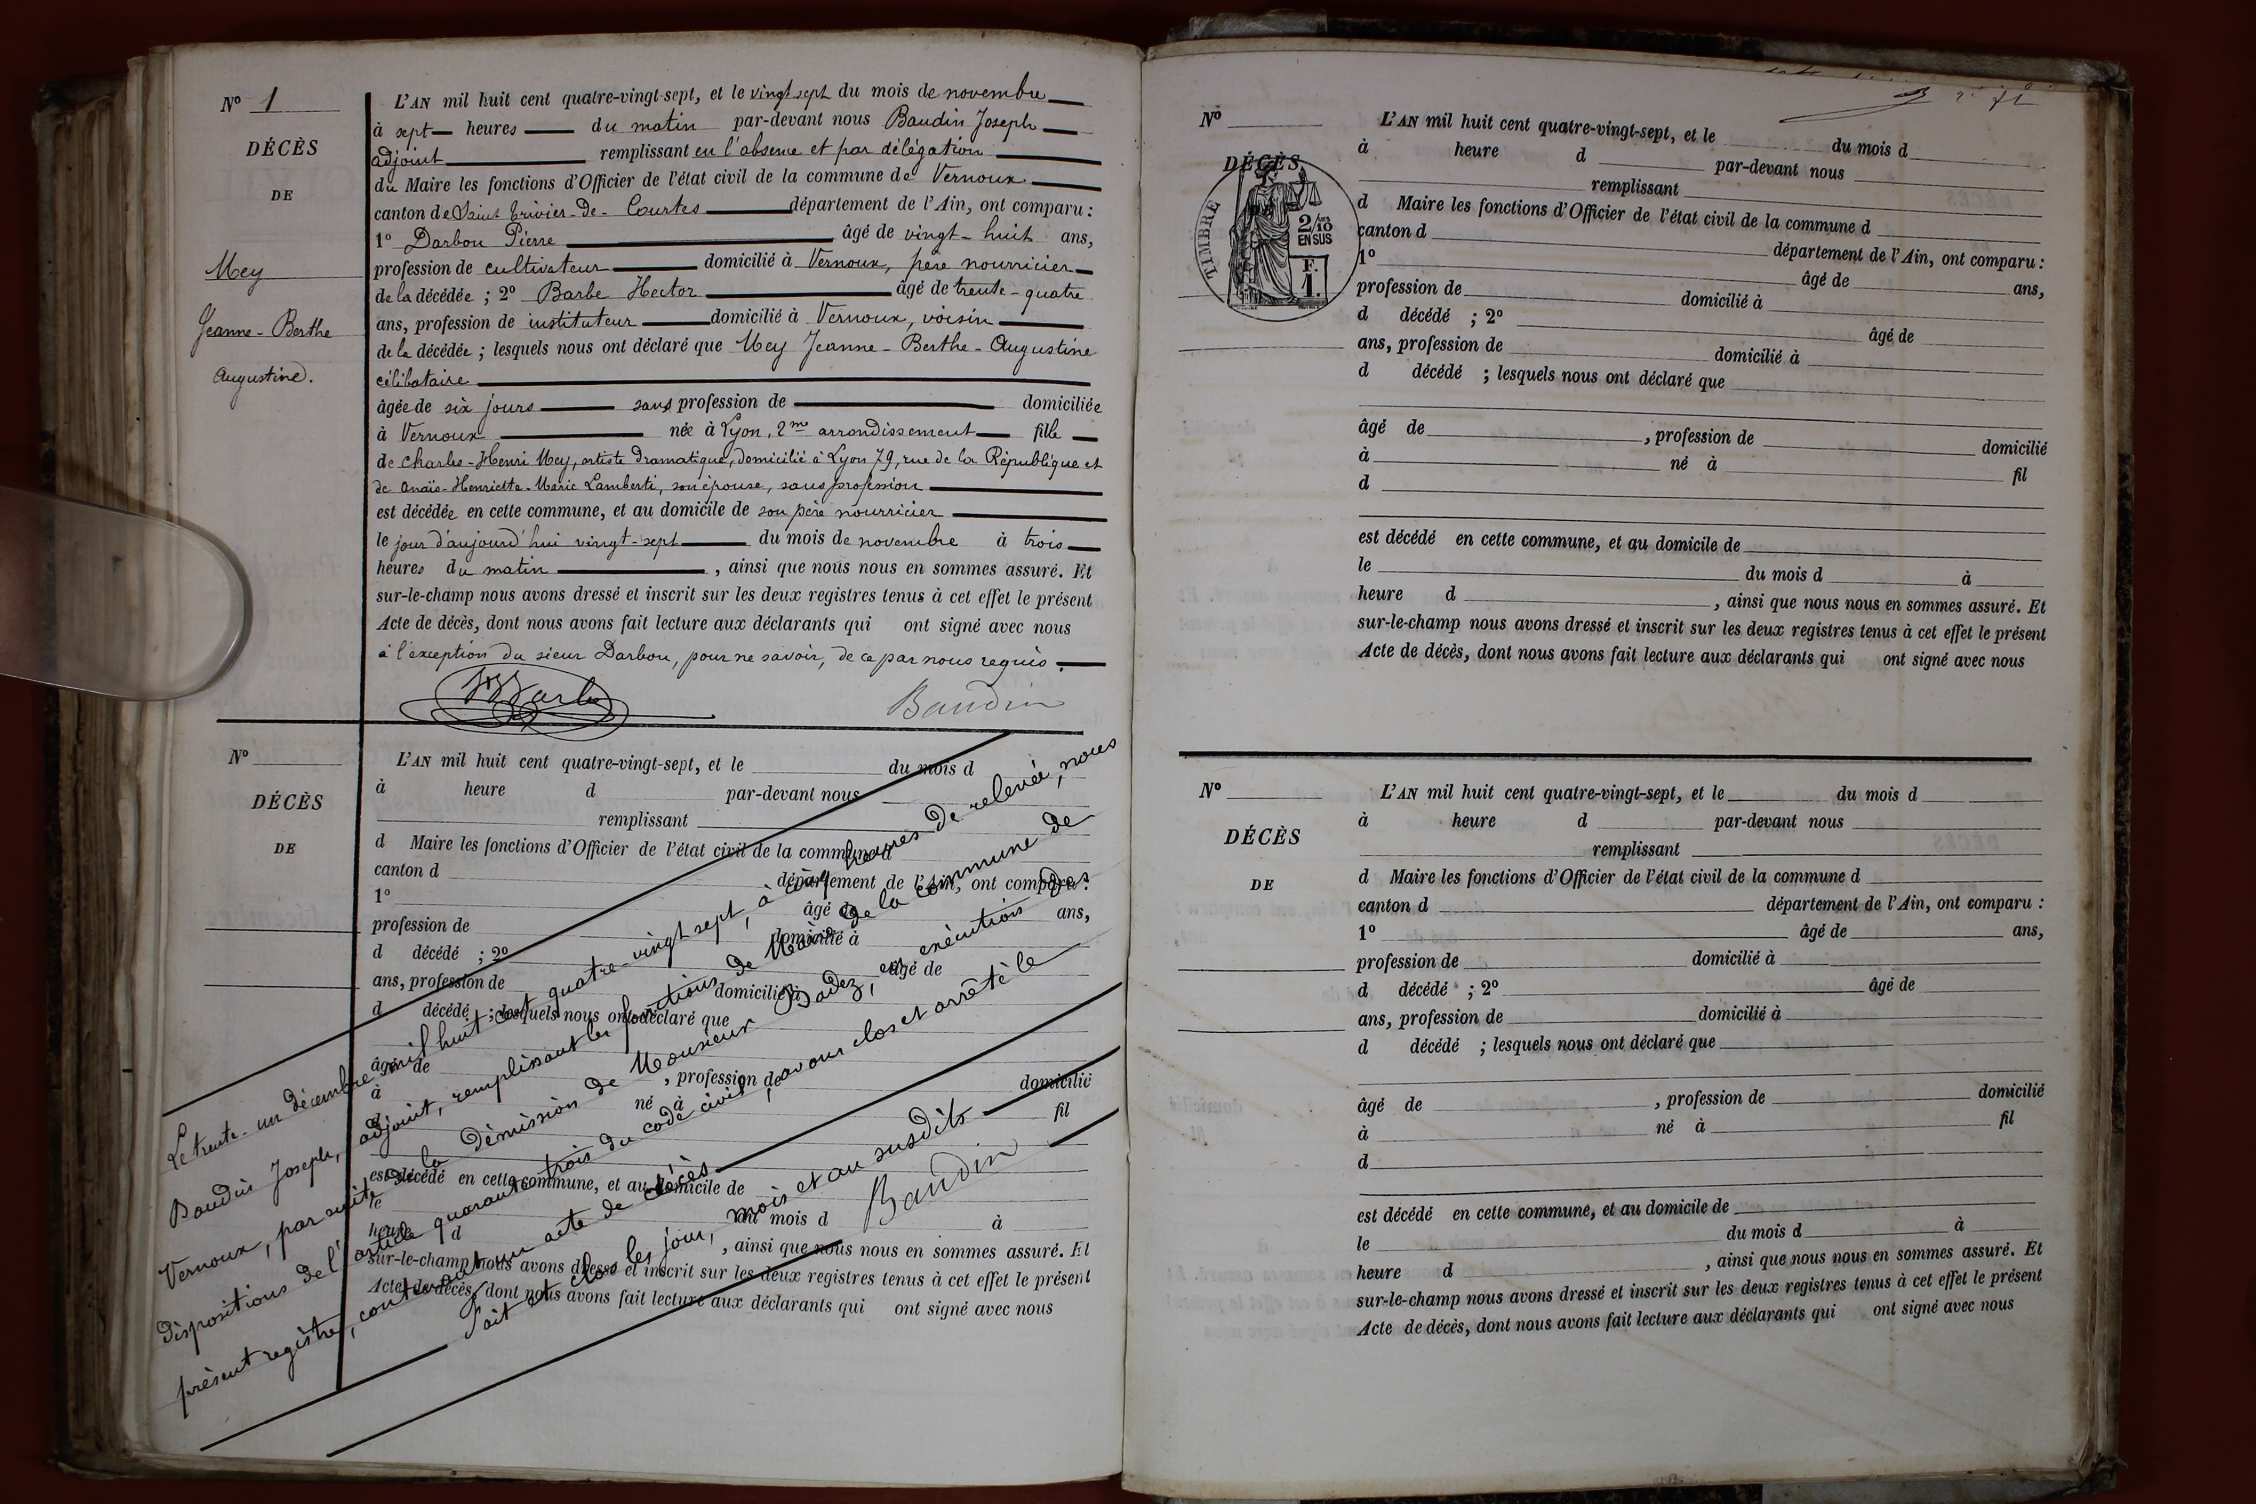 N° 1
DÉCÈS
DE
Mey
Jeanne-Berthe
Augustine.
L'AN mil huit cent quatre-vingt-sept, et le vingt sept du mois de novembre
à sept heures du matin par-devant nous Baudin Joseph
adjoint remplissant en l'absence et par délégation
du Maire les fonctions d'Officier de l'état civil de la commune de Vernoux
canton de Saint Trivier-de-Courtes département de l'Ain, ont comparu :
1° Darbon Pierre âgé de vingt-huit ans,
profession de cultivateur domicilié à Vernoux, père nourricier
de la décédée ; 2° Barbe Hector âgé de trente-quatre
ans, profession de instituteur domicilié à Vernoux, voisin
de la décédée ; lesquels nous ont déclaré que Mey Jeanne-Berthe-Augustine
célibataire
âgée de six jours sans profession de domiciliée
à Vernoux née à Lyon, 2me arrondissement fille
de Charles-Henri Mey, artiste dramatique, domicilié à Lyon 79, rue de la République et
de Anaïs-Henriette-Marie Lamberti, son épouse, sans profession
est décédée en cette commune, et au domicile de son père nourricier
le jour d'aujourd'hui vingt-sept du mois de novembre à trois
heures du matin , ainsi que nous nous en sommes assuré. Et
sur-le-champ nous avons dressé et inscrit sur les deux registres tenus à cet effet le présent
Acte de décès, dont nous avons fait lecture aux déclarants qui ont signé avec nous
à l'exception du sieur Darbon, pour ne savoir, de ce par nous requis.
HBarbe Baudin
N°
DÉCÈS
DE
L'AN mil huit cent quatre-vingt-sept, et le du mois d
à heure d par-devant nous
remplissant
d Maire les fonctions d'Officier de l'état civil de la commune d
canton d département de l'Ain, ont comparu :
1° âgé de ans,
profession de domicilié à
d décédé ; 2° âgé de
ans, profession de domicilié à
d décédé ; lesquels nous ont déclaré que
âgé de , profession de domicilié
à né à fil
d
est décédé en cette commune, et au domicile de
le du mois d à
heure d , ainsi que nous nous en sommes assuré. Et
sur-le-champ nous avons dressé et inscrit sur les deux registres tenus à cet effet le présent
Acte de décès, dont nous avons fait lecture aux déclarants qui ont signé avec nous
Le trente-un décembre mil huit cent quatre-vingt sept, à cinq heures de relevée, nous
Baudin Joseph, adjoint, remplissant les fonctions de Maire de la commune de
Vernoux, par suite de la démission de Monsieur Badez, en exécution des
dispositions de l'article quarante trois du code civil, avons clos et arrêté le
présent registre, contenant un acte de décès
Fait et clos les jour, mois et an susdits
Baudin
N°
DÉCÈS
TIMBRE
2/10
EN SUS
F.
1.
L'AN mil huit cent quatre-vingt-sept, et le du mois d
à heure d par-devant nous
remplissant
d Maire les fonctions d'Officier de l'état civil de la commune d
canton d département de l'Ain, ont comparu :
1° âgé de ans,
profession de domicilié à
d décédé ; 2° âgé de
ans, profession de domicilié à
d décédé ; lesquels nous ont déclaré que
âgé de , profession de domicilié
à né à fil
d
est décédé en cette commune, et au domicile de
le du mois d à
heure d , ainsi que nous nous en sommes assuré. Et
sur-le-champ nous avons dressé et inscrit sur les deux registres tenus à cet effet le présent
Acte de décès, dont nous avons fait lecture aux déclarants qui ont signé avec nous
N°
DÉCÈS
DE
L'AN mil huit cent quatre-vingt-sept, et le du mois d
à heure d par-devant nous
remplissant
d Maire les fonctions d'Officier de l'état civil de la commune d
canton d département de l'Ain, ont comparu :
1° âgé de ans,
profession de domicilié à
d décédé ; 2° âgé de
ans, profession de domicilié à
d décédé ; lesquels nous ont déclaré que
âgé de , profession de domicilié
à né à fil
d
est décédé en cette commune, et au domicile de
le du mois d à
heure d , ainsi que nous nous en sommes assuré. Et
sur-le-champ nous avons dressé et inscrit sur les deux registres tenus à cet effet le présent
Acte de décès, dont nous avons fait lecture aux déclarants qui ont signé avec nous